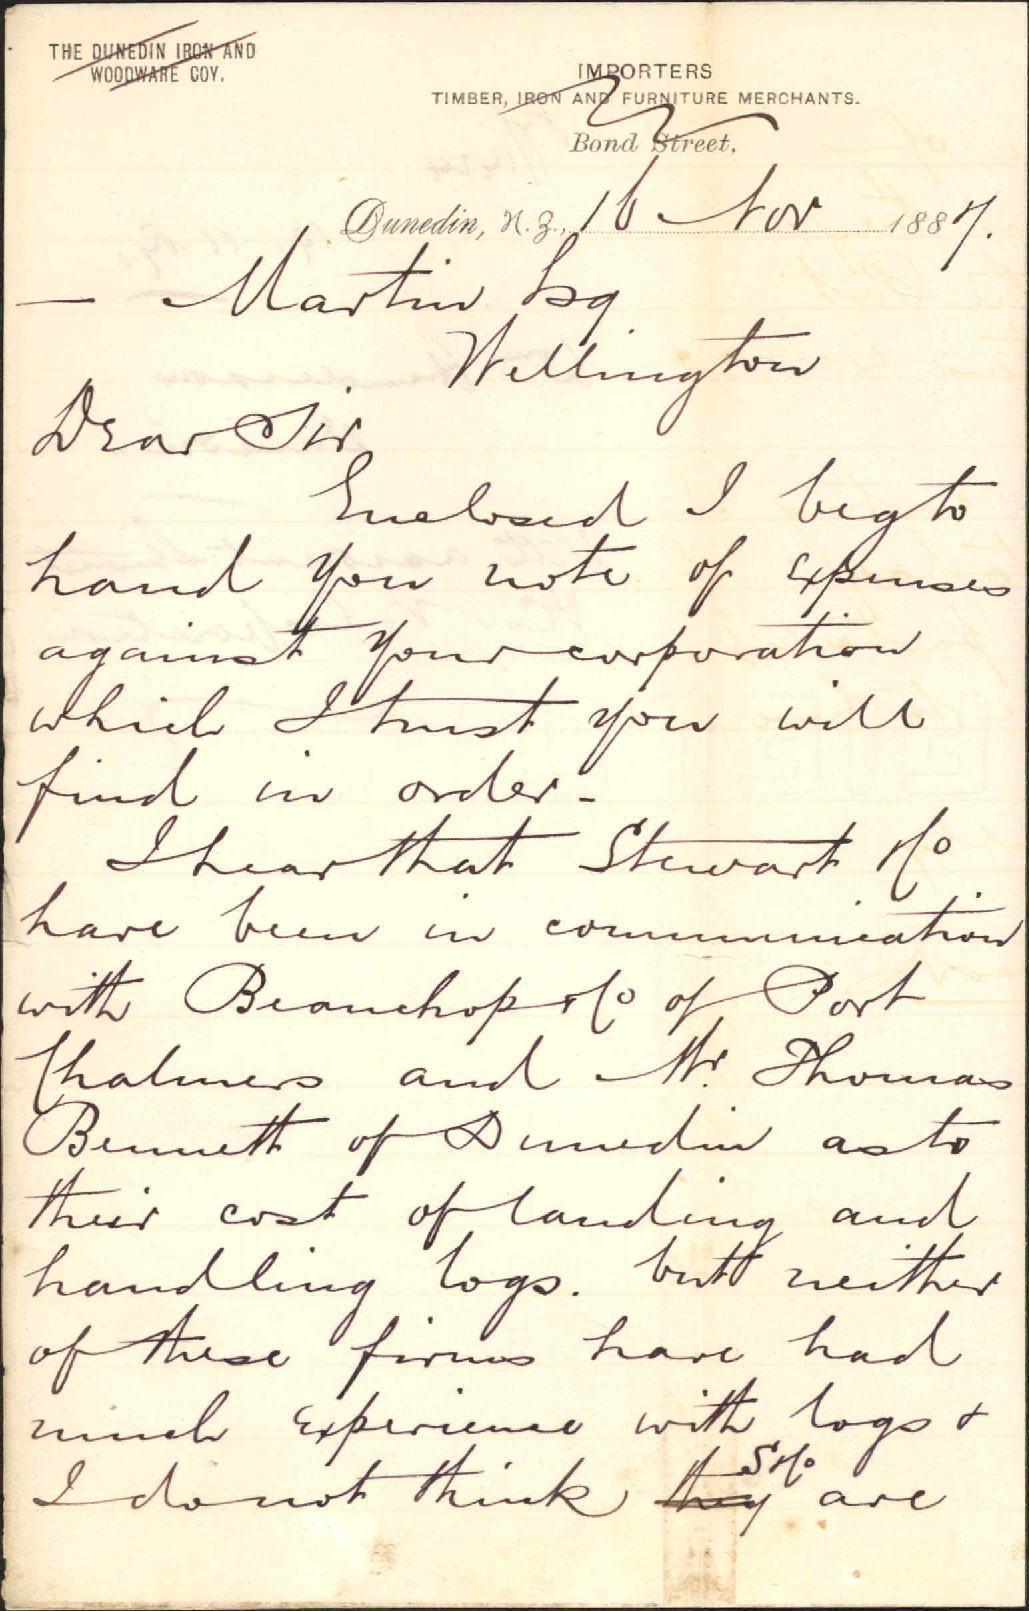 THE DUNEDIN IRON AND
WOODWARE COY.
IMPORTERS
TIMBER, IRON AND FURNITURE MERCHANTS.
Bond Street,
Dunedin, N.Z., 16 Nov 1887.
— Martin Esq
Wellington
Dear Sir
Enclosed I beg to
hand you note of expenses
against your corporation
which I trust you will
find in order -
I hear that Stewart & Co
have been in communication
with Beauchop & Co of Port
Chalmers and Mr. Thomas
Bennett of Dunedin as to
their cost of landing and
handling logs. but neither
of these firms have had
much experience with logs &
S & Co
I do not think they are